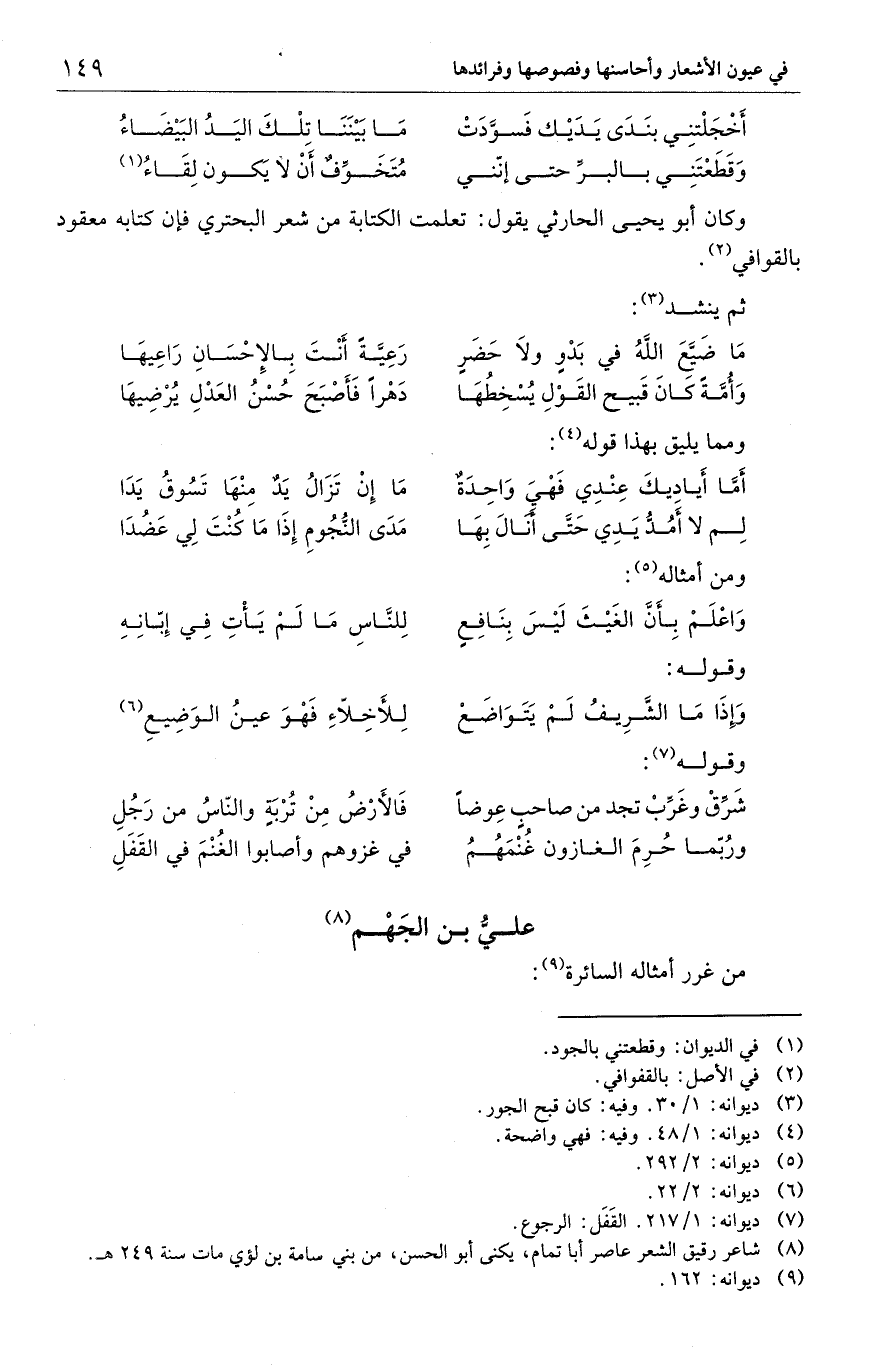 في عيون الأشعار وأحاسنها وفصوصها وفرائدها ١٤٩
أَخْجَلْتَنِي بنَدَى يَدَيْك فَسوَّدَتْ مَا بَيْنَنَا تِلْكَ اليَدُ البَيْضَاءُ
وَقَطَعْتَنِي بالبرِّ حتى إنّني مُتَخَوِّفٌ أَنْ لا يَكون لِقَاءُ(١)
وكان أبو يحيى الحارثي يقول: تعلمت الكتابة من شعر البحتري فإن كتابه معقود
بالقوافي(٢).
ثم ينشد(٣):
مَا ضَيَّعَ اللَّهُ في بَدْوٍ ولا حَضَرٍ رَعِيَّةً أَنْتَ بِالإِحْسَانِ رَاعِيهَا
وَأُمَّةً كَانَ قَبيح القَوْلِ يُسْخِطُهَا دَهْراً فَأَصْبَحَ حُسْنُ العَدْلِ يُرْضِيهَا
ومما يليق بهذا قوله(٤):
أَمَّا أَيادِيكَ عِنْدِي فَهْيَ وَاحِدَةٌ مَا إِنْ تَزَالُ يَدٌ مِنْهَا تَسُوقُ يَدَا
لِم لا أَمُدُّ يَدِي حَتَّى أَنَالَ بِهَا مَدَى النُّجُومِ إِذَا مَا كُنْتَ لِي عَضُدَا
ومن أمثاله(٥):
وَاعْلَمْ بِأَنَّ الغَيْثَ لَيْسَ بِنَافِعٍ لِلنَّاسِ مَا لَمْ يَأْتِ فِي إبّانِهِ
وقوله:
وَإِذَا مَا الشَّرِيفُ لَمْ يَتَوَاضَعْ لِلأَخِلّاءِ فَهْوَ عينُ الوَضِيعِ(٦)
وقوله(٧):
شَرِّقْ وغَرِّبْ تجد من صاحبٍ عِوضاً فَالأَرْضُ مِنْ تُرْبَةٍ والنّاسُ من رَجُلِ
ورُبّما حُرِمَ الغازون غُنْمَهُمُ في غزوهم وأصابوا الغُنْمَ في القَفَلِ
عليُّ بن الجَهْم(٨)
من غرر أمثاله السائرة(٩):
(١) في الديوان: وقطعتني بالجود.
(٢) في الأصل: بالقفوافي.
(٣) ديوانه: ٣٠/١. وفيه: كان قبح الجور.
(٤) ديوانه: ٤٨/١. وفيه: فهي واضحة.
(٥) ديوانه: ٢٩٢/٢.
(٦) ديوانه: ٢٢/٢.
(٧) ديوانه: ٢١٧/١. القَفَل: الرجوع.
(٨) شاعر رقيق الشعر عاصر أبا تمام، يكنى أبو الحسن، من بني سامة بن لؤي مات سنة ٢٤٩ هـ.
(٩) ديوانه: ١٦٢.